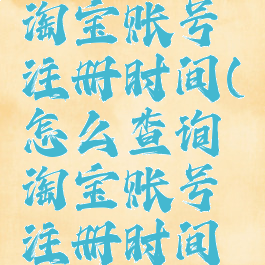 淘宝账号
注册时间(
怎么查询
淘宝账号
注册时间